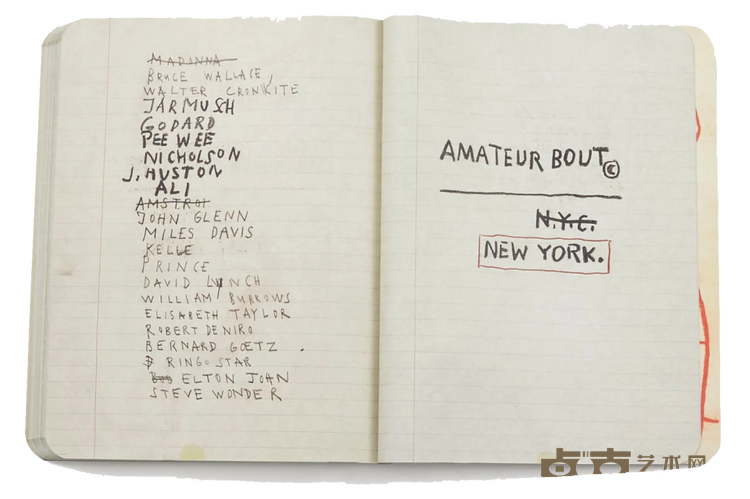 MADONNA
BRUCE WALLACE,
WALTER CRONKITE
JARMUSH
GODARD
PEE WEE
NICHOLSON
J. HUSTON
ALI
AMSTROI
JOHN GLENN
MILES DAVIS
KELLE
PRINCE
DAVID LYNCH
WILLIAM BURROWS
ELISABETH TAYLOR
ROBERT DENIRO
BERNARD GOETZ .
RINGO STAR
ELTON JOHN
STEVE WONDER
AMATEUR BOUT©
N.Y.C.
NEW YORK.
艺术网